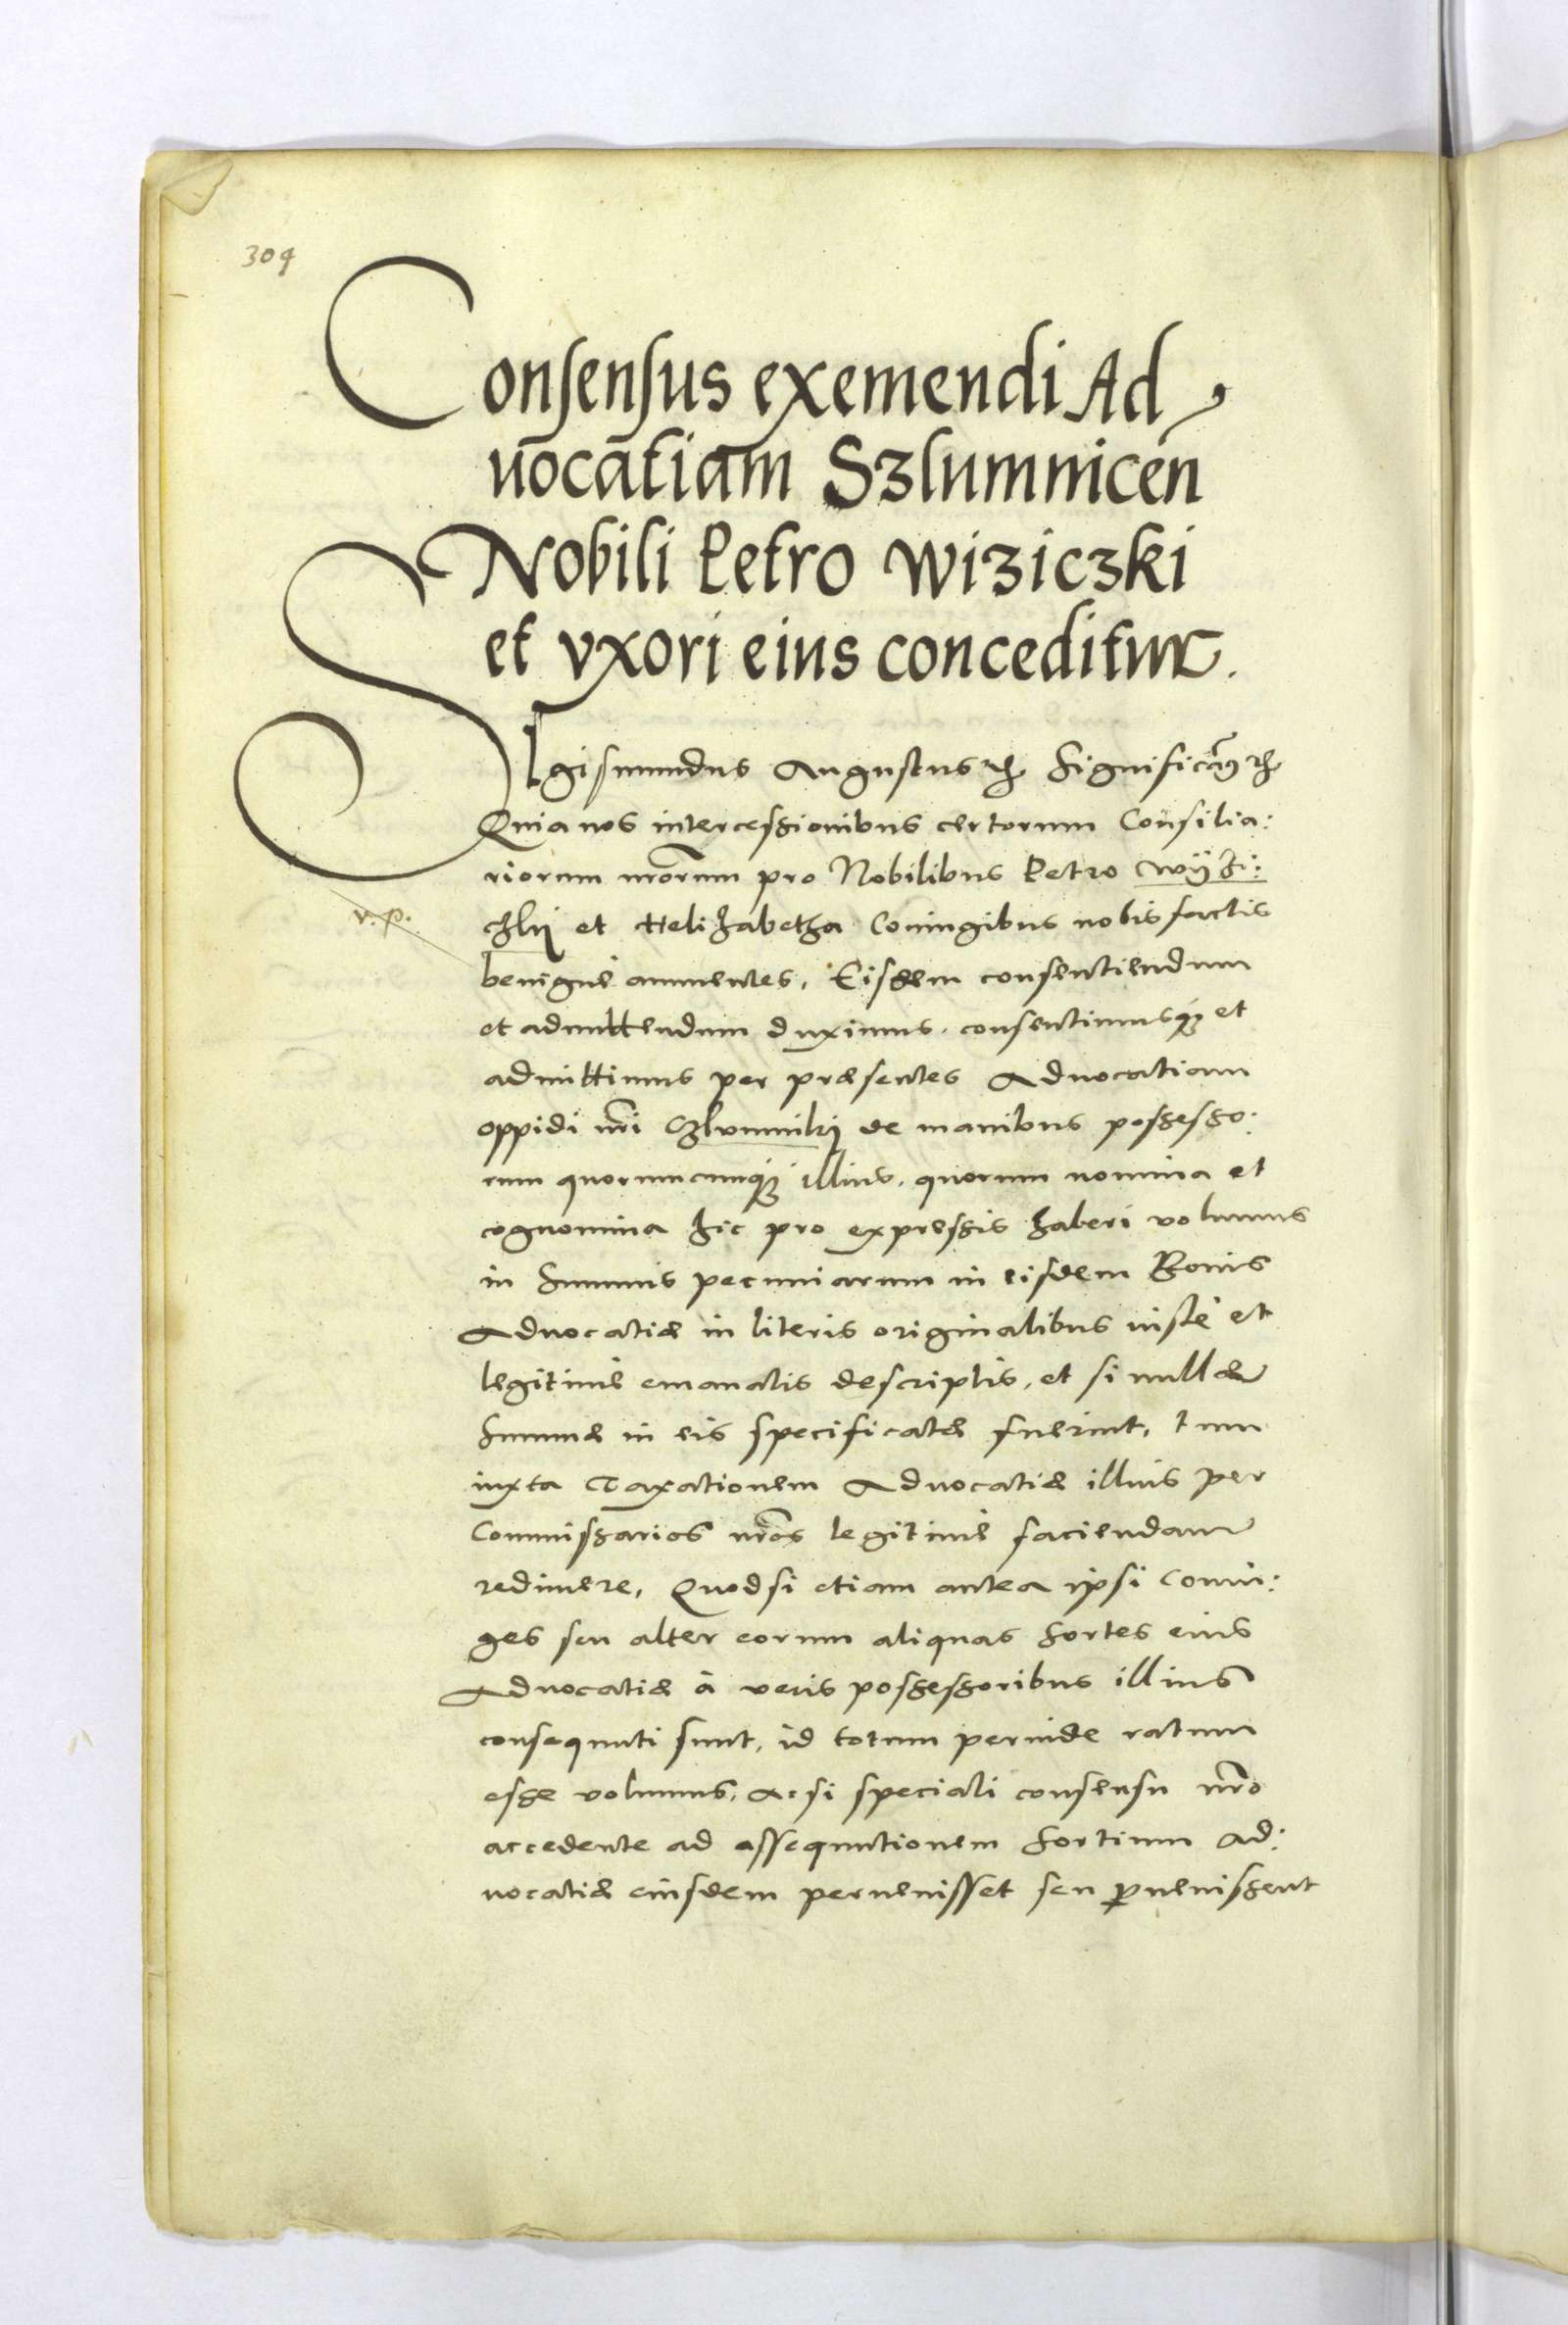 304
Consensus exemendi Ad
uocatiam Szlumnicen
Nobili Petro Wiziczki
et vxori eius conceditur.
SIgismundus Augustus etc. Significamus etc.
Quia nos intercessionibus certorum Consilia:
riorum nrorum pro Nobilibus Petro
v. p.
et Helizabetha Coniugibus nobis factis
benignè annuentes, Eisdem consentiendum
et admittendum duximus. consentimusq; et
admittimus per præsentes Aduocatiam
oppidi nri Czlumniky de manibus possesso:
rum quorumcumq; illius. quorum nomina et
cognomina hic pro expressis haberi volumus
in summis pecuniarum in eisdem Bonis
Aduocatiæ in literis originalibus iustè et
legitimè emanatis descriptis, et si nullæ
summæ in eis specificatæ fuerint, tum
iuxta Taxationem Aduocatiæ illius per
Commissarios nros legitimè faciendam
redimere, Quod si etiam antea ipsi Coniu:
ges seu alter eorum aliquas sortes eius
Aduocatiæ à veris possessoribus illius
consequuti sunt, id totum perinde ratum
esse volumus, Ac si speciali consensu nro
accedente ad assequutionem sortium Ad:
uocatiæ eiusdem peruenisset seu peruenissent